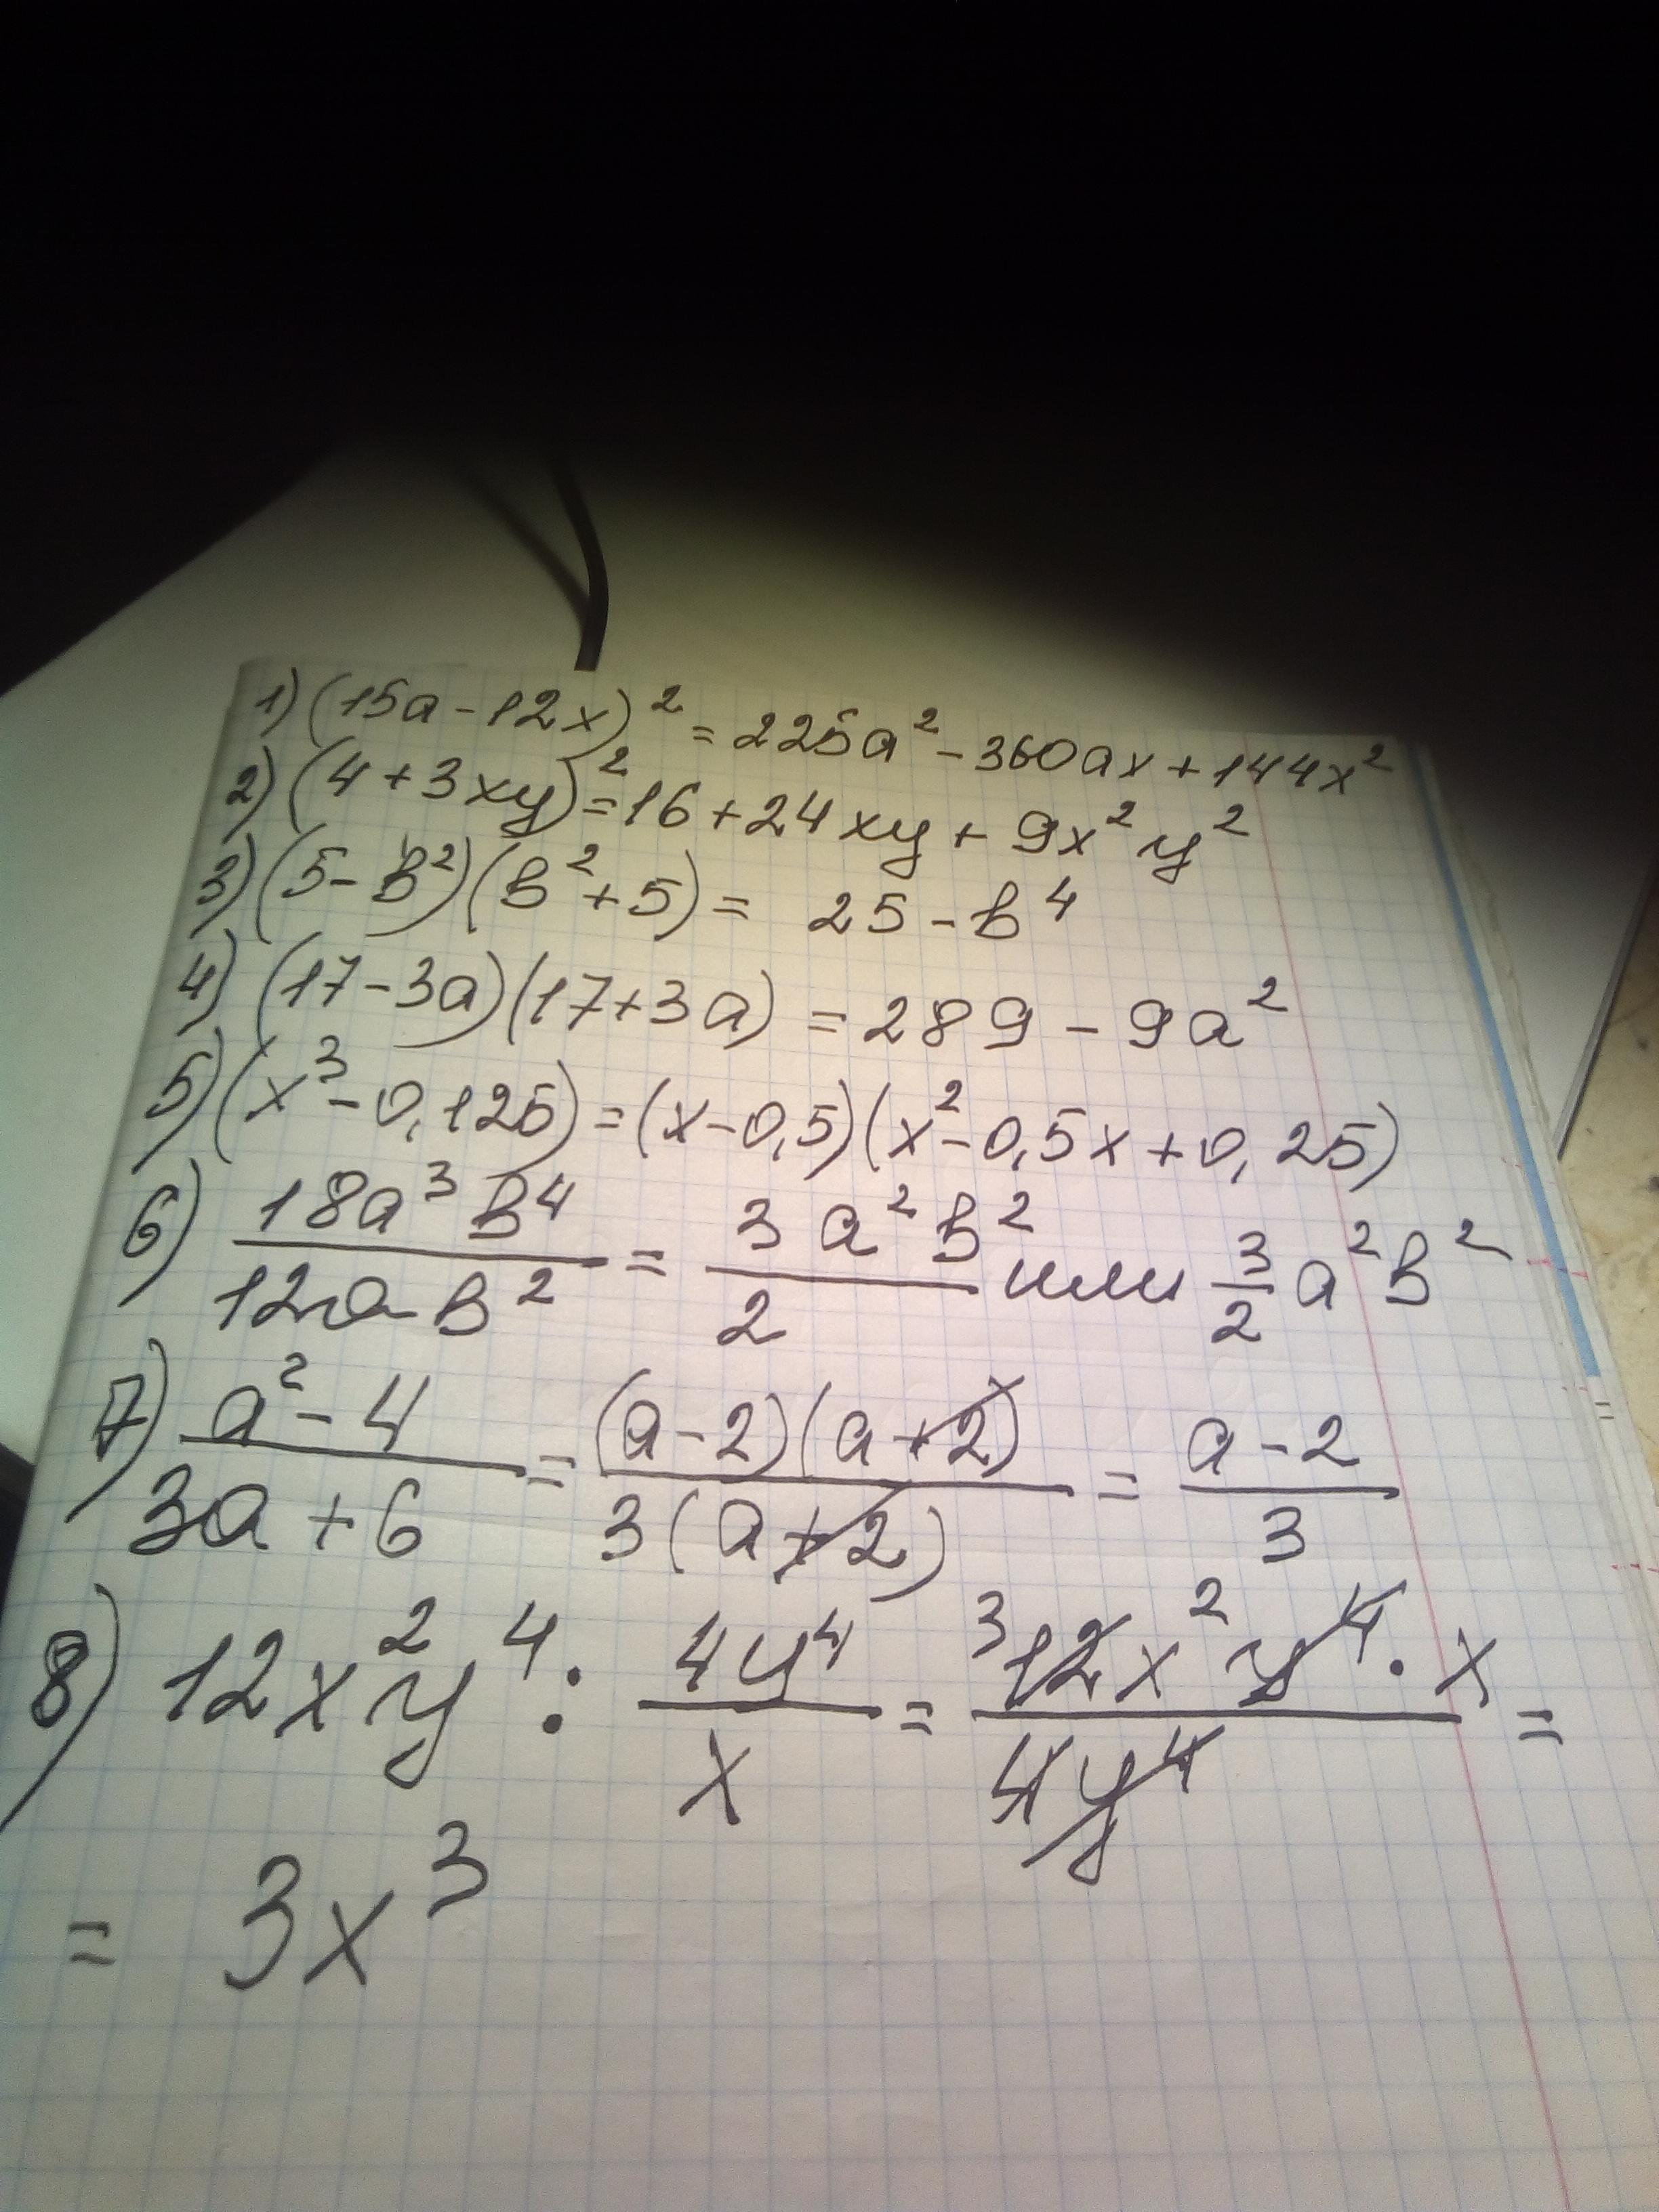 1) (15a - 12x)² = 225a² - 360ax + 144x²
2) (4 + 3xy)² = 16 + 24xy + 9x²y²
3) (5 - в²)(в² + 5) = 25 - в⁴
4) (17 - 3a)(17 + 3a) = 289 - 9a²
5) (x³ - 0,125) = (x - 0,5)(x² - 0,5x + 0,25)
6) 18a³в⁴/12aв² = 3a²в²/2 или 3/2 a²в²
7) a² - 4/3a + 6 = (a - 2)(a + 2)/3(a + 2) = a - 2/3
8) 12x²y⁴ : 4y⁴/x = ³12x²y⁴ · x/4y⁴ =
= 3x³